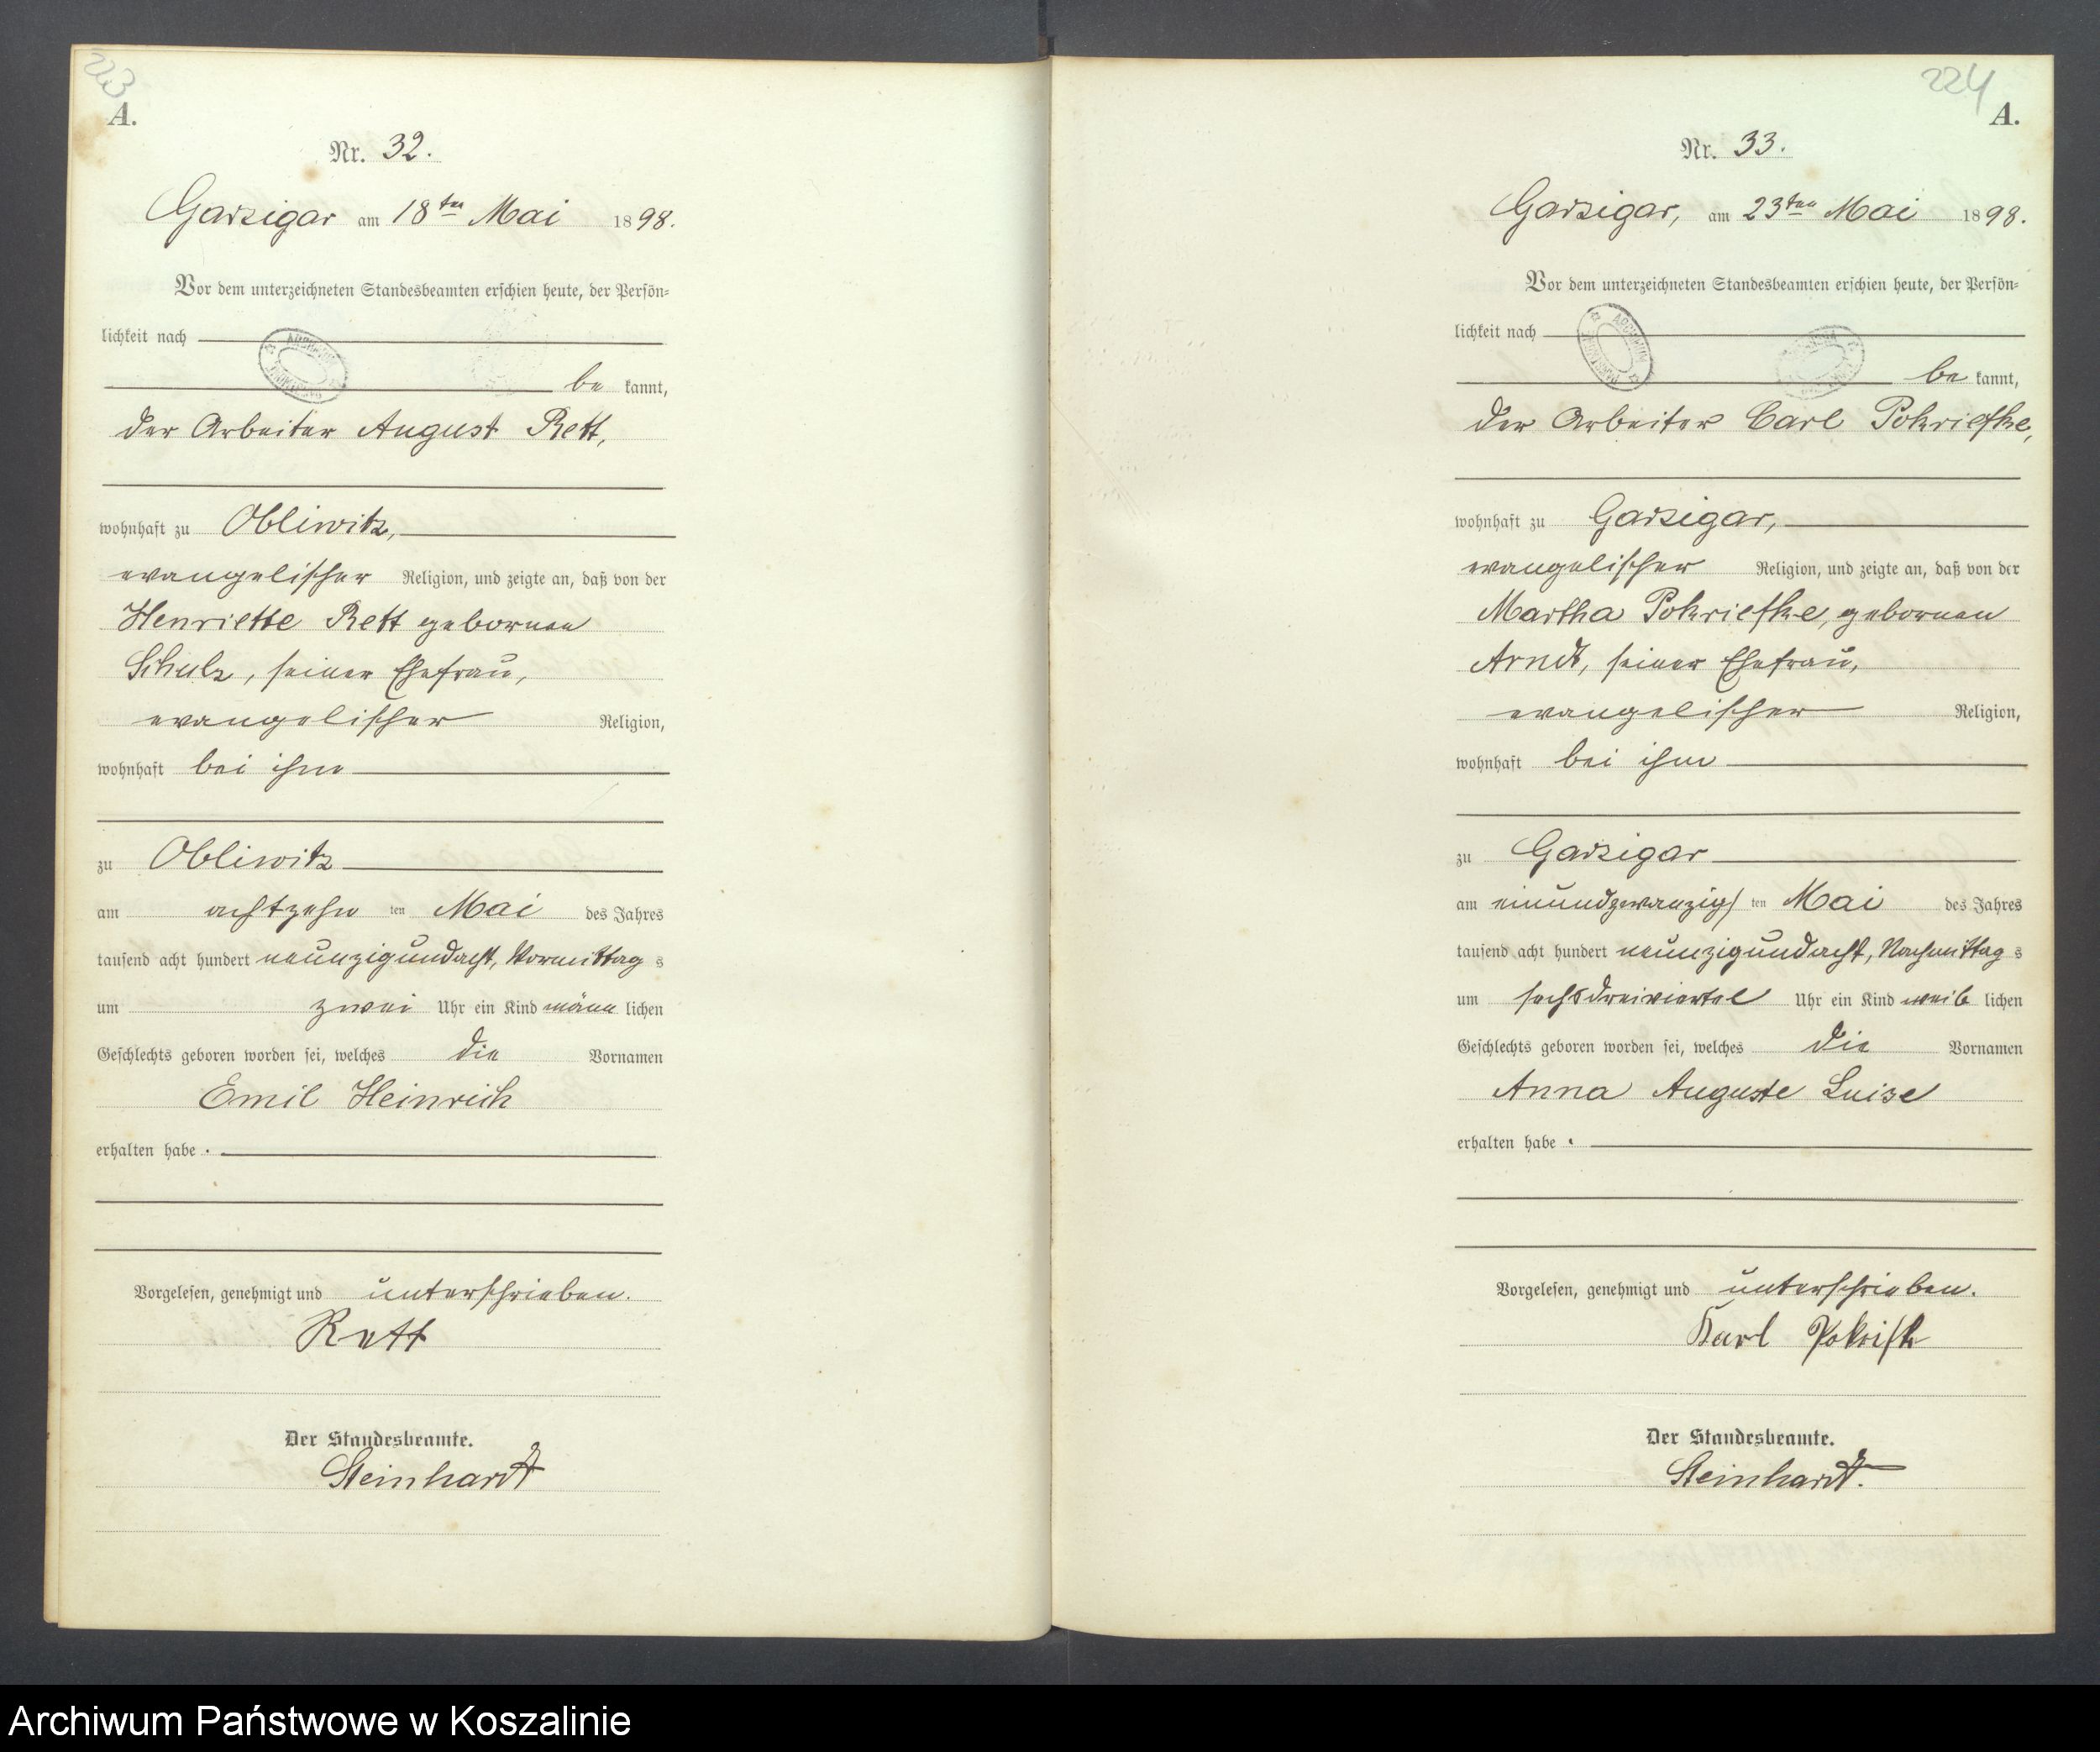 223
A.
Nr. 32.
Garzigar am 18ten Mai 1898.
Vor dem unterzeichneten Standesbeamten erschien heute, der Persön-
lichkeit nach
be kannt,
der Arbeiter August Rett,
wohnhaft zu Obliwitz,
evangelischer Religion, und zeigte an, daß von der
Henriette Rett gebornen
Schulz, seiner Ehefrau,
evangelischer Religion,
wohnhaft bei ihm
zu Obliwitz
am achtzehn ten Mai des Jahres
tausend acht hundert neunzigundacht, Vormittag s
um zwei Uhr ein Kind männ lichen
Geschlechts geboren worden sei, welches die Vornamen
Emil Heinrich
erhalten habe.
Vorgelesen, genehmigt und unterschrieben.
Rett
Der Standesbeamte.
Steinhardt
224
A.
Nr. 33.
Garzigar, am 23ten Mai 1898.
Vor dem unterzeichneten Standesbeamten erschien heute, der Persön-
lichkeit nach
ARCHIWUM
be kannt,
der Arbeiter Carl Pokriefke,
wohnhaft zu Garzigar,
evangelischer Religion, und zeigte an, daß von der
Martha Pokriefke, gebornen
Arndt, seiner Ehefrau,
evangelischer Religion,
wohnhaft bei ihm
zu Garzigar
am einundzwanzig ten Mai des Jahres
tausend acht hundert neunzigundacht, Nachmittag s
um sechsdreiviertel Uhr ein Kind weib lichen
Geschlechts geboren worden sei, welches die Vornamen
Anna Auguste Luise
erhalten habe.
Vorgelesen, genehmigt und unterschrieben.
Karl Pokrifk
Der Standesbeamte.
Steinhardt.
Archiwum Państwowe w Koszalinie